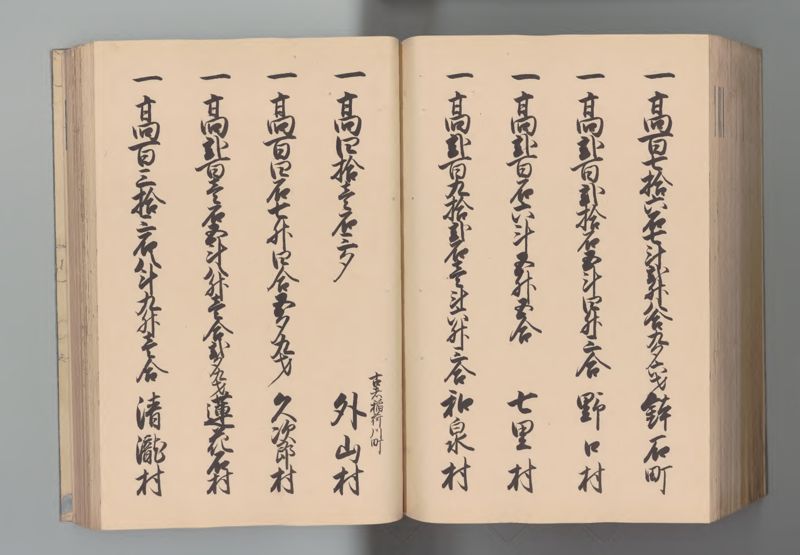 一高百七拾六石七斗弐升八合九夕六才 鉢石町
一高弐百弐拾石五斗四升三合 野口村
一高弐百石六斗五升五合 七里村
一高弐百九拾弐石壱斗六升三合 和泉村
一高四拾壱石三夕 外山村
古者稲荷川町
一高百四石七升四合五夕九才 久次郎村
一高弐百壱石五斗八升壱合弐夕九才 蓮花石村
一高百三拾三石八斗九升壱合 清瀧村